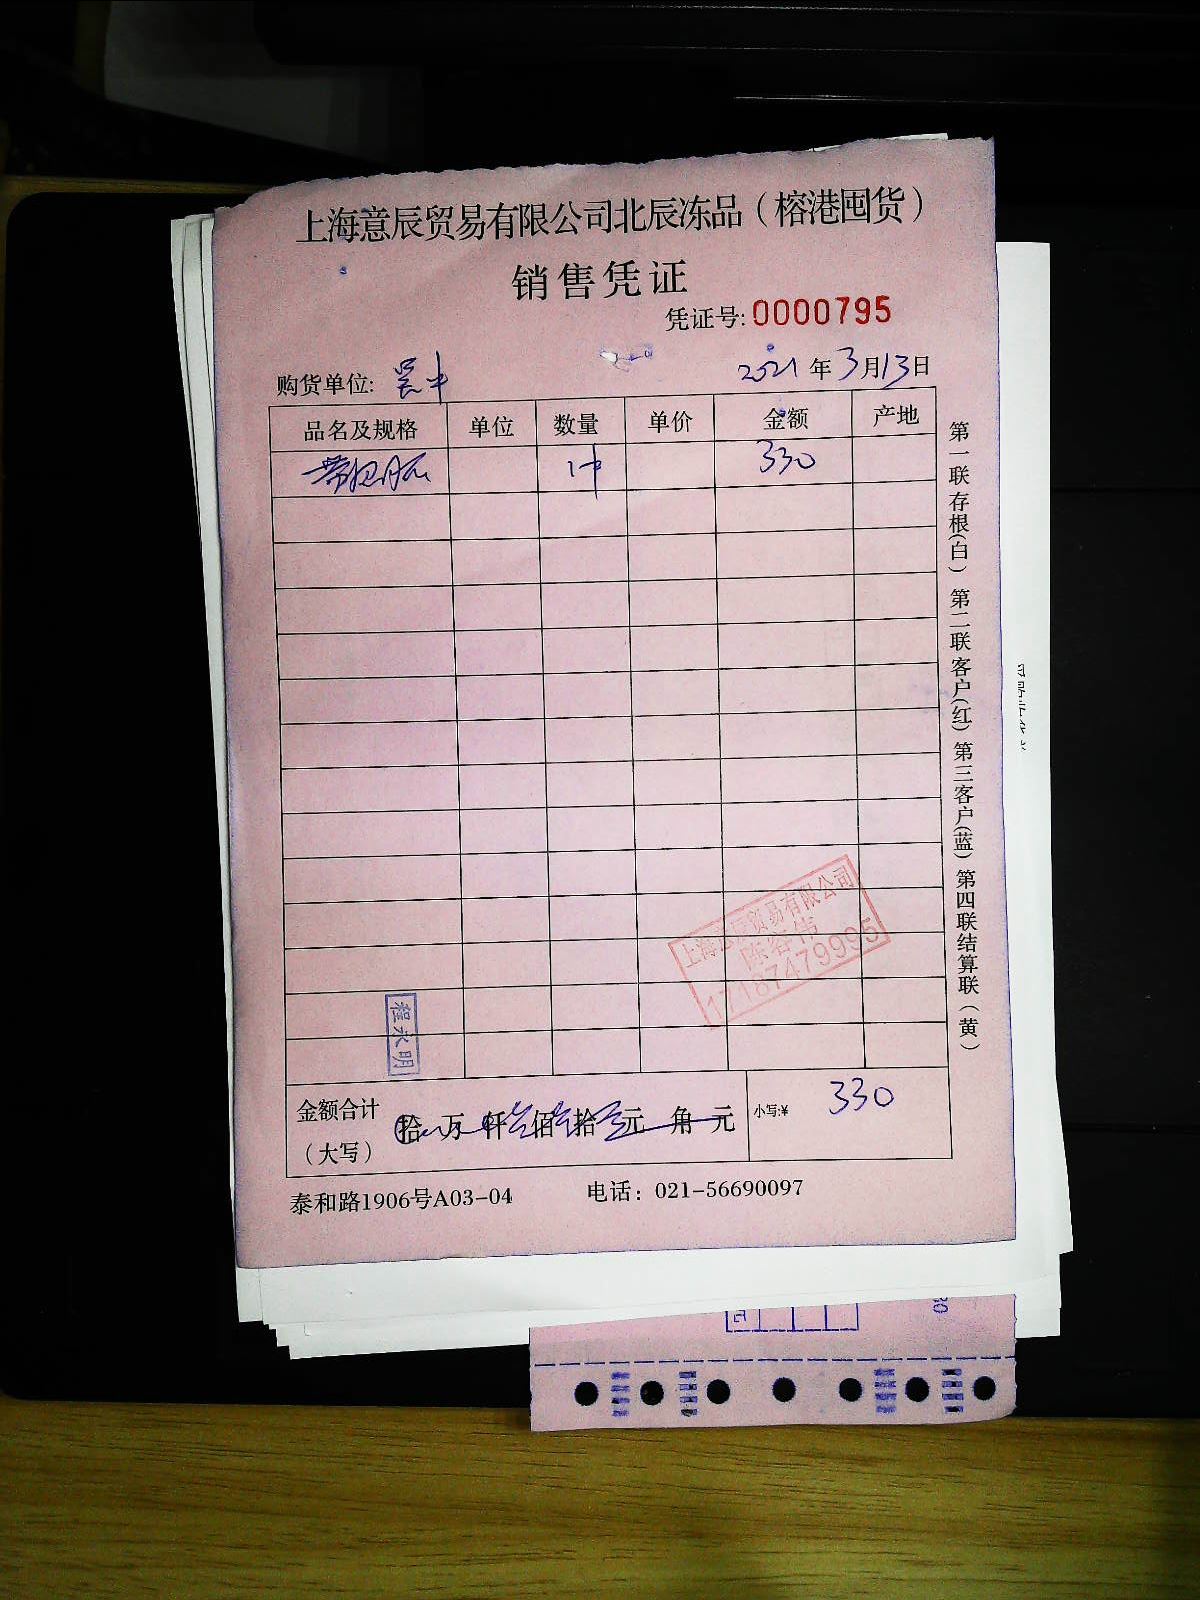 上海意辰贸易有限公司北辰冻品（榕港囤货）
销售凭证
凭证号:0000795
购货单位: 吴中 2021年3月13日
品名及规格 单位 数量 单价 金额 产地
1件 330
第一联存根(白) 第二联客户(红) 第三客户(蓝) 第四联结算联（黄）
上海意辰贸易有限公司
陈容伟
17187479995
程永明
金额合计（大写） 拾 万 仟 佰 拾 元 角 元 小写:¥ 330
泰和路1906号A03-04 电话：021-56690097